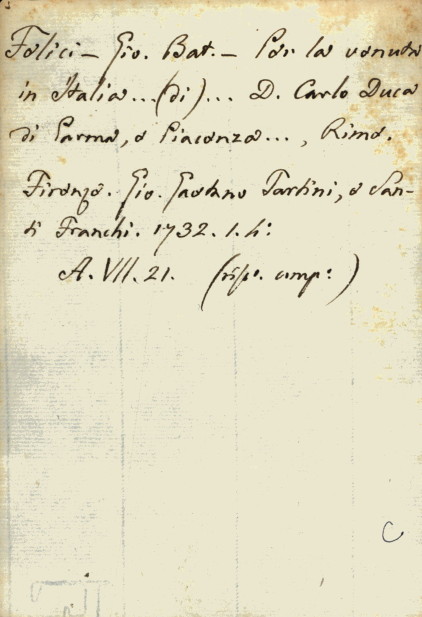 Felici - Gio. Bat. - Per la venuta
in Italia...(di)... D. Carlo Duca
di Parma, e Piacenza..., Rime.
Firenze. Gio. Gaetano Tartini, e San-
ti Franchi. 1732. 1. h:
A. VII. 21. (risp. comp: )
C